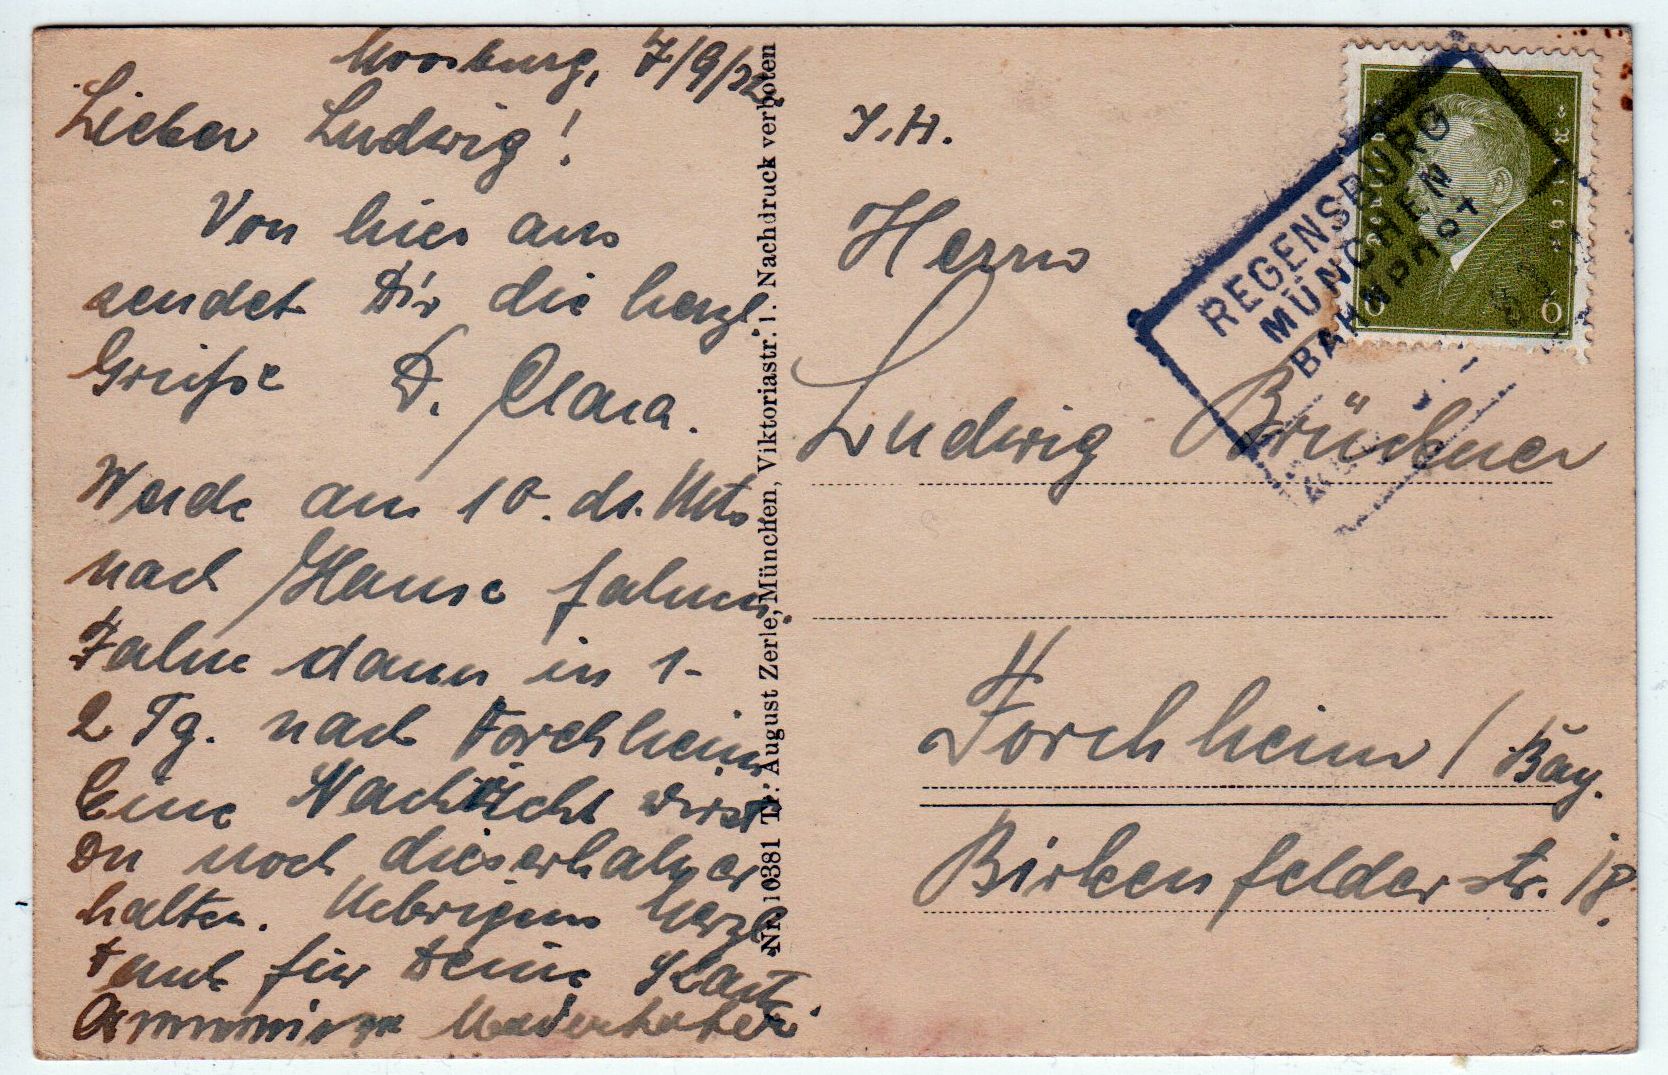 Moosburg, 7/9/32
Lieber Ludwig!
Von hier aus
sendet Dir die herzl.
Grüße D. Clara.
Werde am 10. ds. Mts
nach Hause fahren.
Fahre dann in 1-
2 Tg. nach Forchheim
Eine Nachricht wirst
Du noch dieserhalb er
halten. Uebrigens herzl
Dank für Deine Karte
Nr. 10381 August Zerle, München, Viktoriastr. 1. Nachdruck verboten
Herrn
Ludwig Brückner
Forchheim / Bay.
Birkenfelderstr. 18.
REGENSBURG
MÜNCHEN
BAHNPOST
6 6